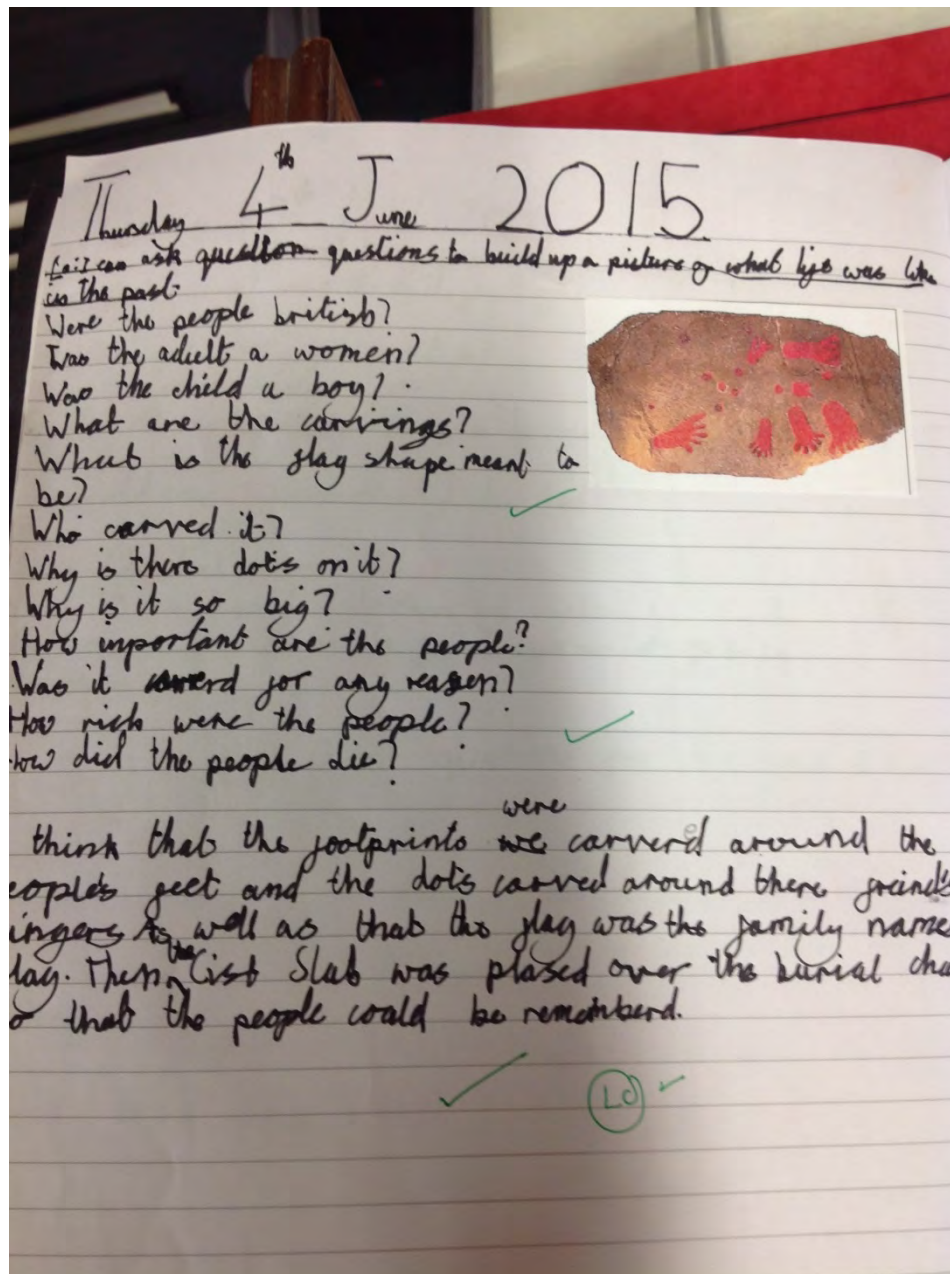 Thursday 4th June 2015
L.o: I can ask question questions to build up a picture of what life was like
in the past.
Were the people british?
Was the adult a women?
Was the child a boy?
What are the carvings?
What is the flag shape meant to
be?
Who carved it?
Why is there dots on it?
Why is it so big?
How important are the people?
Was it carverd for any reason?
How rich were the people?
How did the people die?
think that the footprints were carverd around the
eople's feet and the dots carved around there freind's
ingers As well as that the flag was the family name
lag. Then the Cist Slab was plased over the burial cha
o that the people could be rememberd.
LO